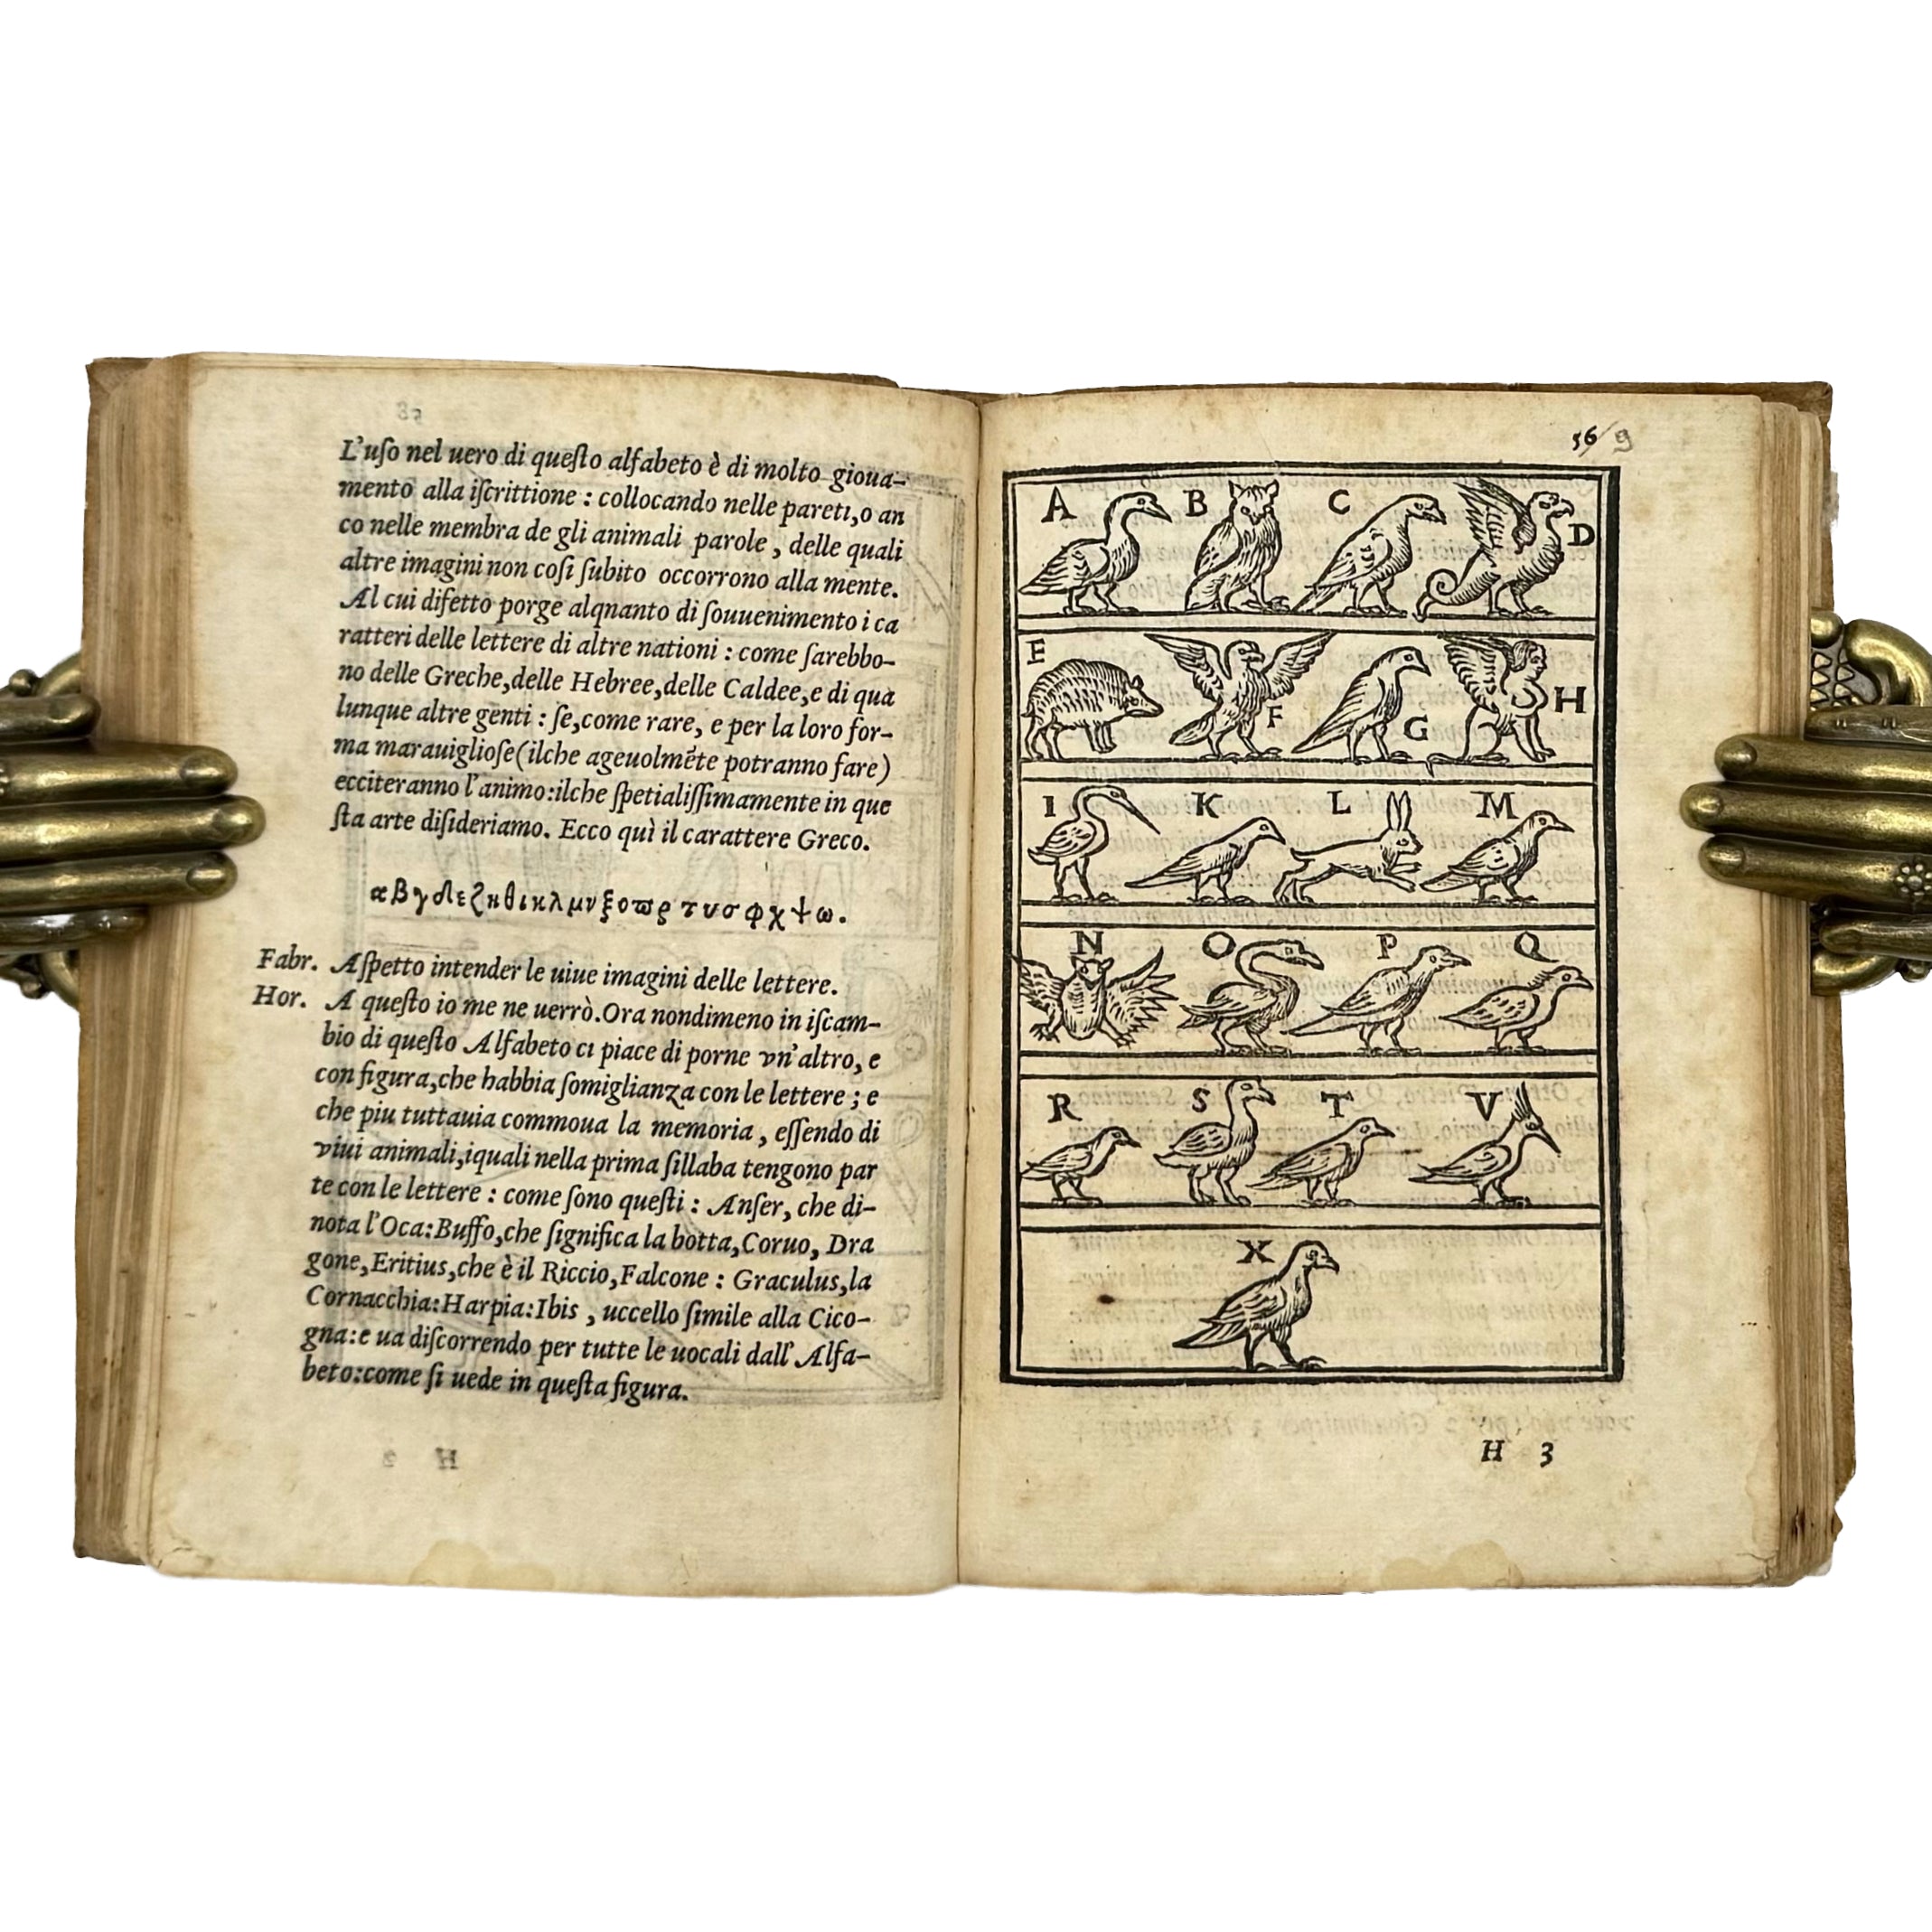 L'uſo nel uero di queſto alfabeto è di molto gioua-
mento alla iſcrittione : collocando nelle pareti,o an
co nelle membra de gli animali parole , delle quali
altre imagini non coſi ſubito occorrono alla mente.
Al cui difetto porge alqnanto di ſouuenimento i ca
ratteri delle lettere di altre nationi : come ſarebbo-
no delle Greche,delle Hebree,delle Caldee,e di qua
lunque altre genti : ſe,come rare, e per la loro for-
ma marauiglioſe(ilche ageuolmẽte potranno fare)
ecciteranno l'animo:ilche ſpetialiſſimamente in que
ſta arte diſideriamo. Ecco quì il carattere Greco.
α β γ δ ε ζ η θ ι κ λ μ ν ξ ο ϖ ρ τ υ σ φ χ ψ ω .
Fabr. Aſpetto intender le uiue imagini delle lettere.
Hor. A queſto io me ne uerrò.Ora nondimeno in iſcam-
bio di queſto Alfabeto ci piace di porne vn'altro, e
con figura,che habbia ſomiglianza con le lettere ; e
che piu tuttauia commoua la memoria , eſſendo di
viui animali,iquali nella prima ſillaba tengono par
te con le lettere : come ſono queſti : Anſer, che di-
nota l'Oca:Buffo,che ſignifica la botta,Coruo, Dra
gone,Eritius,che è il Riccio,Falcone : Graculus,la
Cornacchia:Harpia:Ibis , uccello ſimile alla Cico-
gna:e ua diſcorrendo per tutte le uocali dall'Alfa-
beto:come ſi uede in queſta figura.
56/9
A B C D
E F G H
I K L M
N O P Q
R S T V
X
H 3